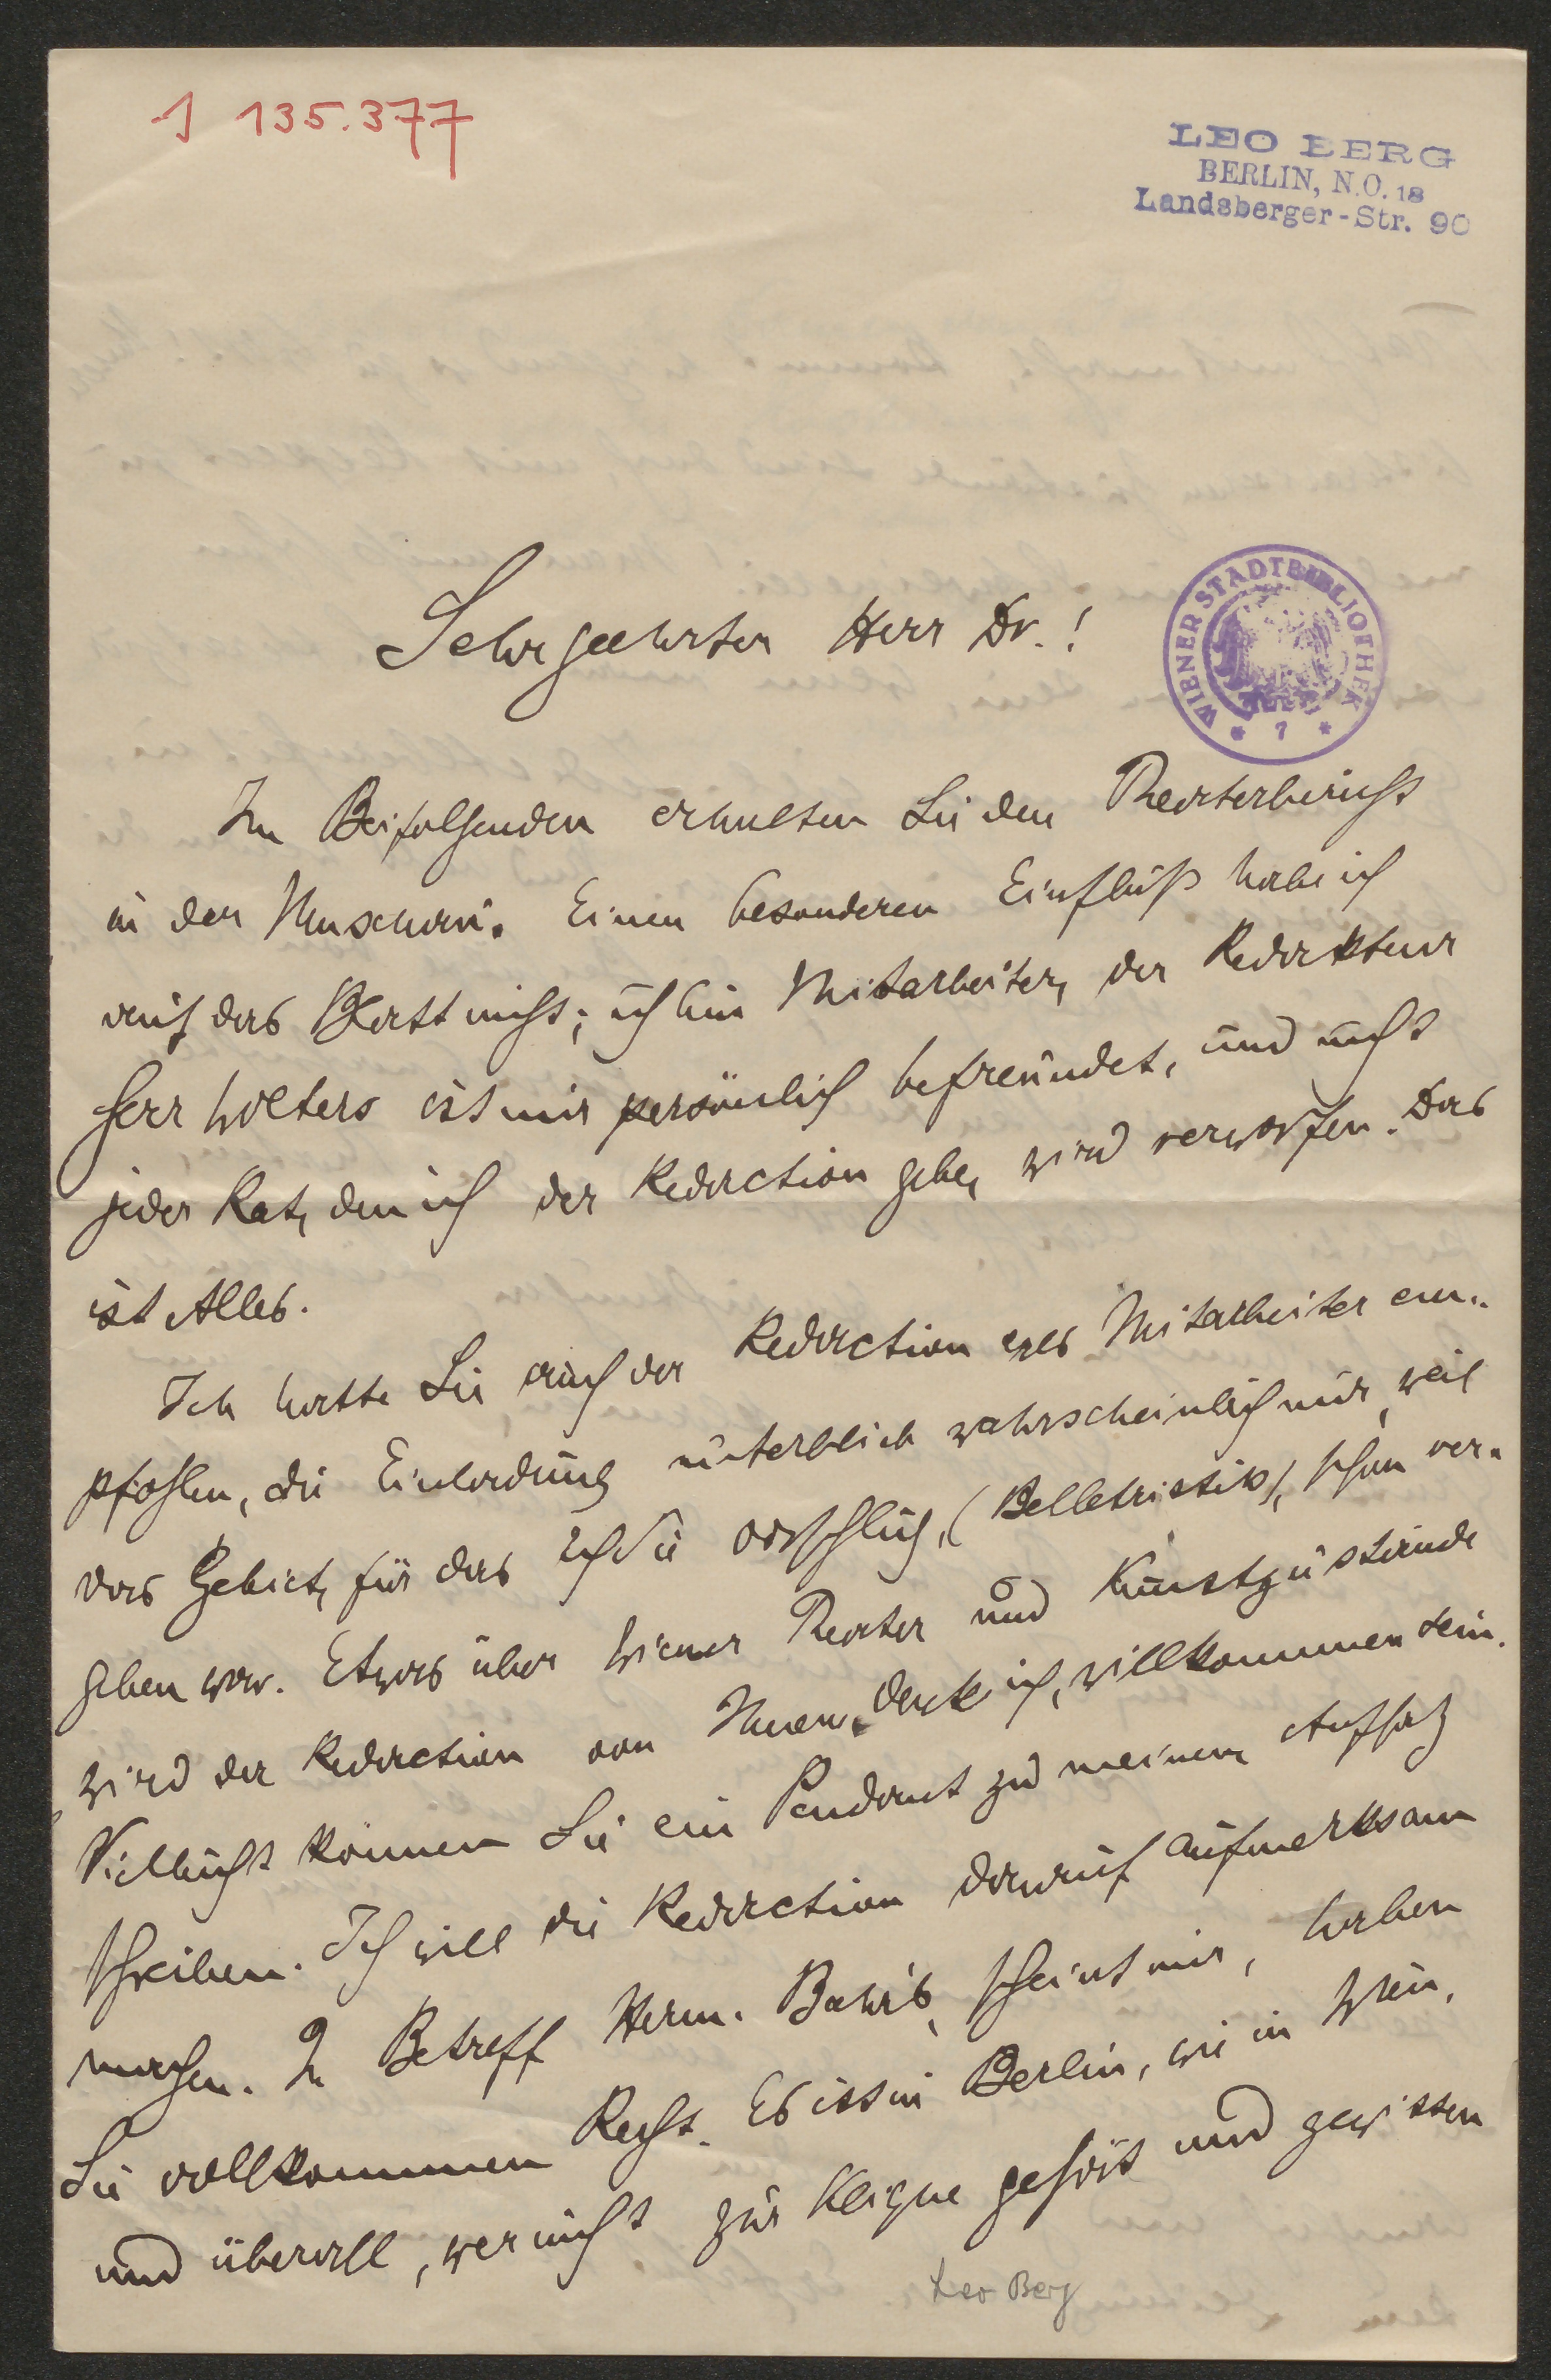 J 135.377
LEO BERG
BERLIN, N.O. 18
Landsberger-Str. 90
WIENER STADTBIBLIOTHEK
* 7 *
Sehr geehrter Herr Dr.!
Im Beifolgenden erhalten Sie den Theaterbericht
in der Umschau. Einen besonderen Einfluß habe ich
auf das Blatt nicht; ich bin Mitarbeiter, der Redakteur
Herr Wolters ist mir persönlich befreundet, und nicht
jeder Rat, den ich der Redaction gebe, wird verworfen. Das
ist Alles.
Ich hatte Sie auch der Redaction als Mitarbeiter em-
pfohlen, die Einladung unterblieb wahrscheinlich nur, weil
das Gebiet, für das ich Sie vorschlug, (Belletristik), schon ver-
geben war. Etwas über Wiener Theater und Kunstzustände
wird der Redaction von Ihnen, denk ich, willkommen sein.
Vielleicht können Sie ein Pendant zu meinem Aufsatz
schreiben. Ich will die Redaction darauf aufmerksam
machen. In Betreff Herm. Bahr's, scheint mir, haben
Sie vollkommen Recht. Es ist in Berlin, wie in Wien,
und überall, wer nicht zur Klique gehört und gewissen
Leo Berg